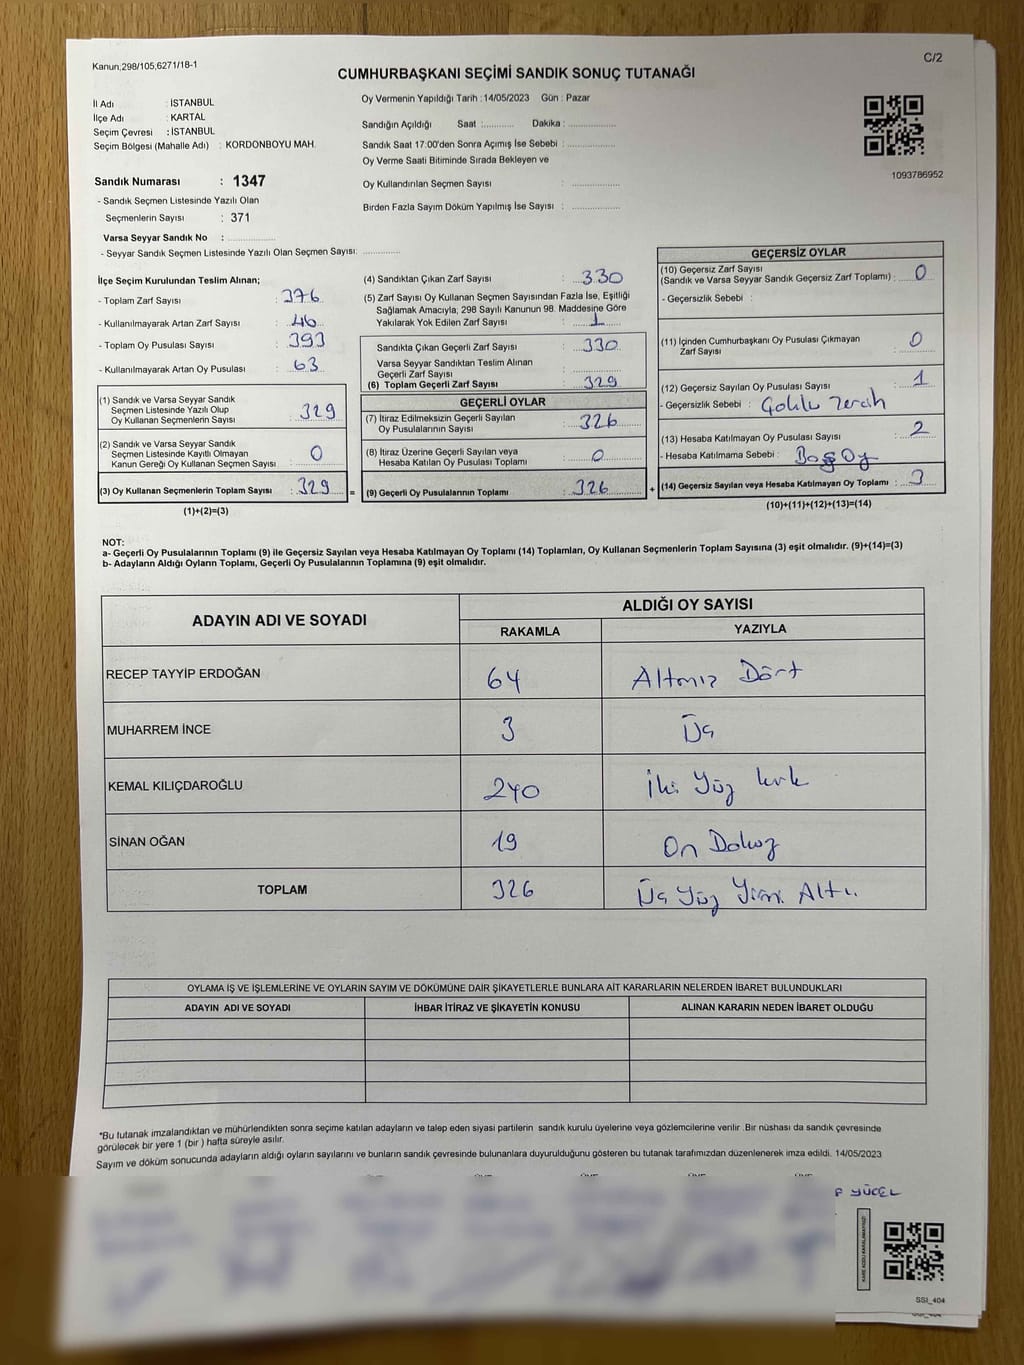 Kanun;298/105,6271/18-1
C/2
CUMHURBAŞKANI SEÇİMİ SANDIK SONUÇ TUTANAĞI
İl Adı : İSTANBUL
İlçe Adı : KARTAL
Seçim Çevresi : İSTANBUL
Seçim Bölgesi (Mahalle Adı) : KORDONBOYU MAH.
Oy Vermenin Yapıldığı Tarih :14/05/2023 Gün : Pazar
Sandığın Açıldığı Saat :............ Dakika : ..................
Sandık Saat 17.00'den Sonra Açımış İse Sebebi : ..................
Oy Verme Saati Bitiminde Sırada Bekleyen ve
Oy Kullandırılan Seçmen Sayısı : ..................
Birden Fazla Sayım Döküm Yapılmış İse Sayısı : ..................
1093786952
Sandık Numarası : 1347
- Sandık Seçmen Listesinde Yazılı Olan
Seçmenlerin Sayısı : 371
Varsa Seyyar Sandık No : ..................
- Seyyar Sandık Seçmen Listesinde Yazılı Olan Seçmen Sayısı: ..............
İlçe Seçim Kurulundan Teslim Alınan;
- Toplam Zarf Sayısı : 376
- Kullanılmayarak Artan Zarf Sayısı : 46
- Toplam Oy Pusulası Sayısı : 393
- Kullanılmayarak Artan Oy Pusulası : 63
(1) Sandık ve Varsa Seyyar Sandık
Seçmen Listesinde Yazılı Olup
Oy Kullanan Seçmenlerin Sayısı : 329
(2) Sandık ve Varsa Seyyar Sandık
Seçmen Listesinde Kayıtlı Olmayan
Kanun Gereği Oy Kullanan Seçmen Sayısı : 0
(3) Oy Kullanan Seçmenlerin Toplam Sayısı : 329 =
(1)+(2)=(3)
(4) Sandıktan Çıkan Zarf Sayısı : 330
(5) Zarf Sayısı Oy Kullanan Seçmen Sayısından Fazla İse, Eşitliği
Sağlamak Amacıyla; 298 Sayılı Kanunun 98. Maddesine Göre
Yakılarak Yok Edilen Zarf Sayısı : 1
Sandıkta Çıkan Geçerli Zarf Sayısı : 330
Varsa Seyyar Sandıktan Teslim Alınan
Geçerli Zarf Sayısı : ..............
(6) Toplam Geçerli Zarf Sayısı : 329
GEÇERLİ OYLAR
(7) İtiraz Edilmeksizin Geçerli Sayılan
Oy Pusulalarının Sayısı : 326
(8) İtiraz Üzerine Geçerli Sayılan veya
Hesaba Katılan Oy Pusulası Toplamı : 0
(9) Geçerli Oy Pusulalarının Toplamı : 326 +
GEÇERSİZ OYLAR
(10) Geçersiz Zarf Sayısı
(Sandık ve Varsa Seyyar Sandık Geçersiz Zarf Toplamı) : 0
- Geçersizlik Sebebi :
(11) İçinden Cumhurbaşkanı Oy Pusulası Çıkmayan
Zarf Sayısı : 0
(12) Geçersiz Sayılan Oy Pusulası Sayısı : 1
- Geçersizlik Sebebi : Çoklu Tercih
(13) Hesaba Katılmayan Oy Pusulası Sayısı : 2
- Hesaba Katılmama Sebebi : Boş Oy
(14) Geçersiz Sayılan veya Hesaba Katılmayan Oy Toplamı : 3
(10)+(11)+(12)+(13)=(14)
NOT:
a- Geçerli Oy Pusulalarının Toplamı (9) ile Geçersiz Sayılan veya Hesaba Katılmayan Oy Toplamı (14) Toplamları, Oy Kullanan Seçmenlerin Toplam Sayısına (3) eşit olmalıdır. (9)+(14)=(3)
b- Adayların Aldığı Oyların Toplamı, Geçerli Oy Pusulalarının Toplamına (9) eşit olmalıdır.
ADAYIN ADI VE SOYADI ALDIĞI OY SAYISI
RAKAMLA YAZIYLA
RECEP TAYYİP ERDOĞAN 64 Altmış Dört
MUHARREM İNCE 3 Üç
KEMAL KILIÇDAROĞLU 240 İki Yüz kırk
SİNAN OĞAN 19 On Dokuz
TOPLAM 326 Üç Yüz Yirmi Altı
OYLAMA İŞ VE İŞLEMLERİNE VE OYLARIN SAYIM VE DÖKÜMÜNE DAİR ŞİKAYETLERLE BUNLARA AİT KARARLARIN NELERDEN İBARET BULUNDUKLARI
ADAYIN ADI VE SOYADI İHBAR İTİRAZ VE ŞİKAYETİN KONUSU ALINAN KARARIN NEDEN İBARET OLDUĞU
*Bu tutanak imzalandıktan ve mühürlendikten sonra seçime katılan adayların ve talep eden siyasi partilerin sandık kurulu üyelerine veya gözlemcilerine verilir .Bir nüshası da sandık çevresinde
görülecek bir yere 1 (bir ) hafta süreyle asılır.
Sayım ve döküm sonucunda adayların aldığı oyların sayılarını ve bunların sandık çevresinde bulunanlara duyurulduğunu gösteren bu tutanak tarafımızdan düzenlenerek imza edildi. 14/05/2023
YÜCEL
KARE KODU KARALAMAYINIZ!
SSI_404